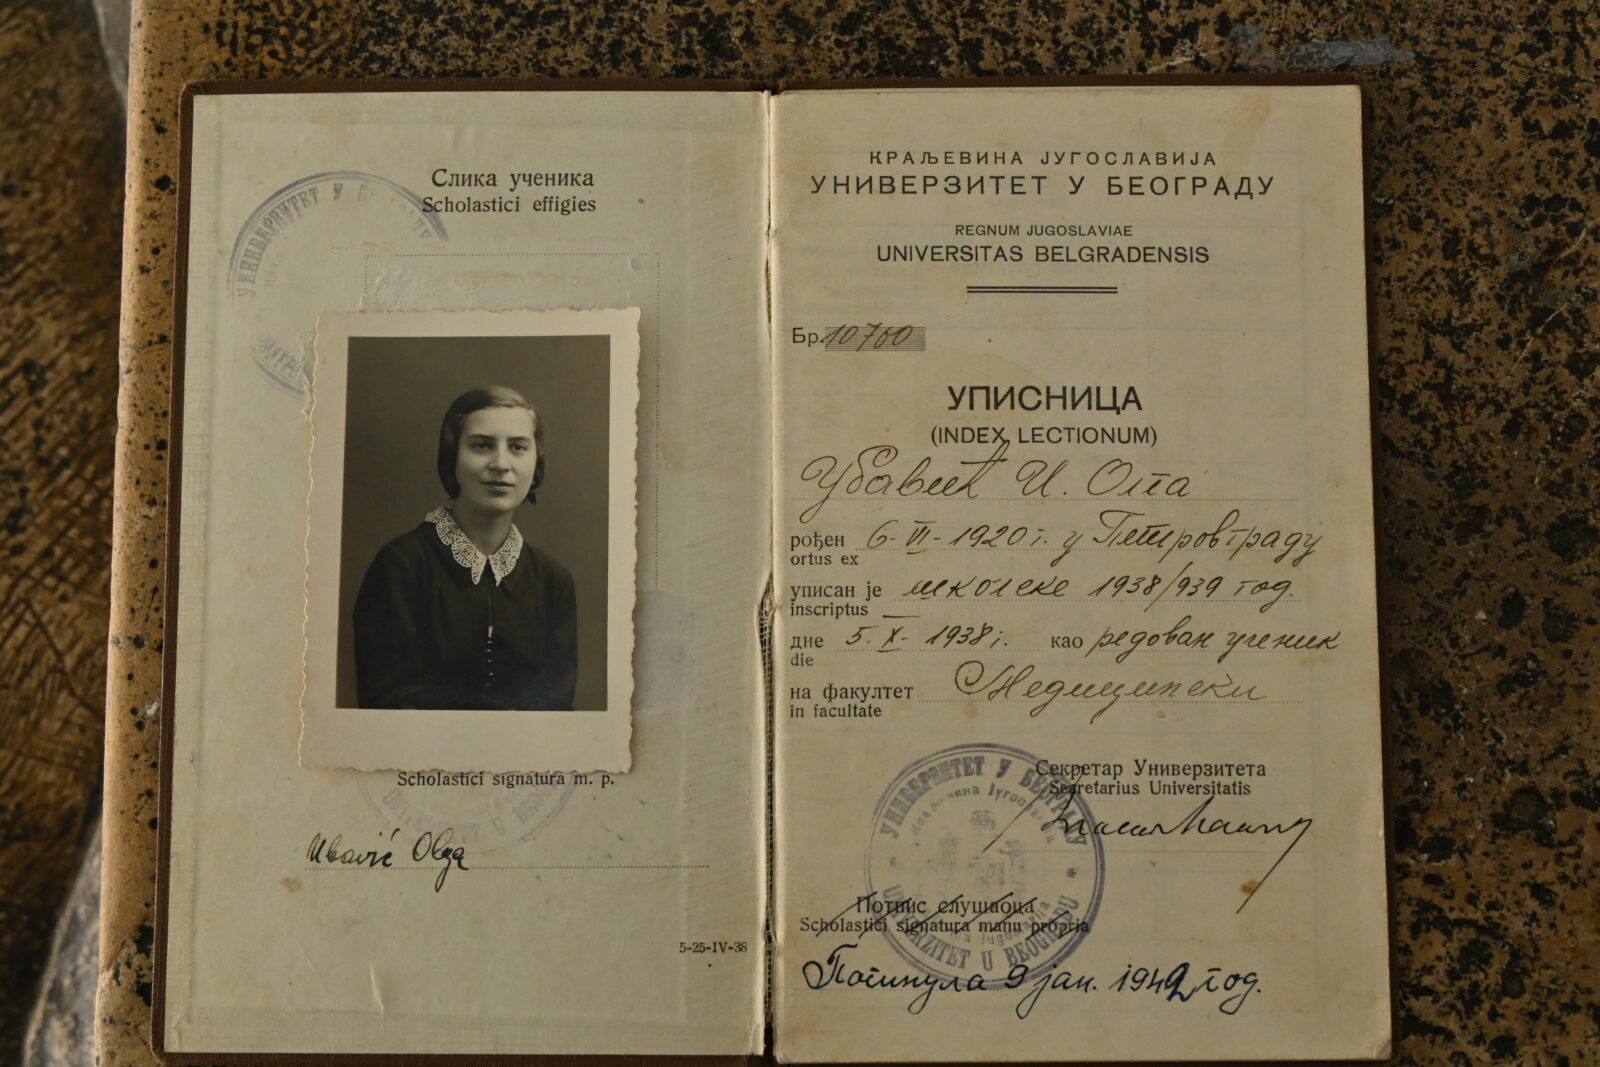 Слика ученика
Scholastici effigies
УНИВЕРЗИТЕТ У
Scholastici signatura m. p.
Ubavić Olga
5-25-IV-38
КРАЉЕВИНА ЈУГОСЛАВИЈА
УНИВЕРЗИТЕТ У БЕОГРАДУ
REGNUM JUGOSLAVIAE
UNIVERSITAS BELGRADENSIS
Бр. 10760
УПИСНИЦА
(INDEX LECTIONUM)
Убавић И. Олга
рођен 6-VI-1920 г. у Петровграду
ortus ex
уписан је школске 1938/939 год.
inscriptus
дне 5. X- 1938 г. као редован ученик
die
на факултет Медицински
in facultate
Секретар Универзитета
Secretarius Universitatis
УНИВЕРЗИТЕТ У БЕОГРАДУ
UNIVERZITET U BEOGRADU
Потпис слушаоца
Scholastici signatura manu propria
Погинула 9 јан. 1942 год.